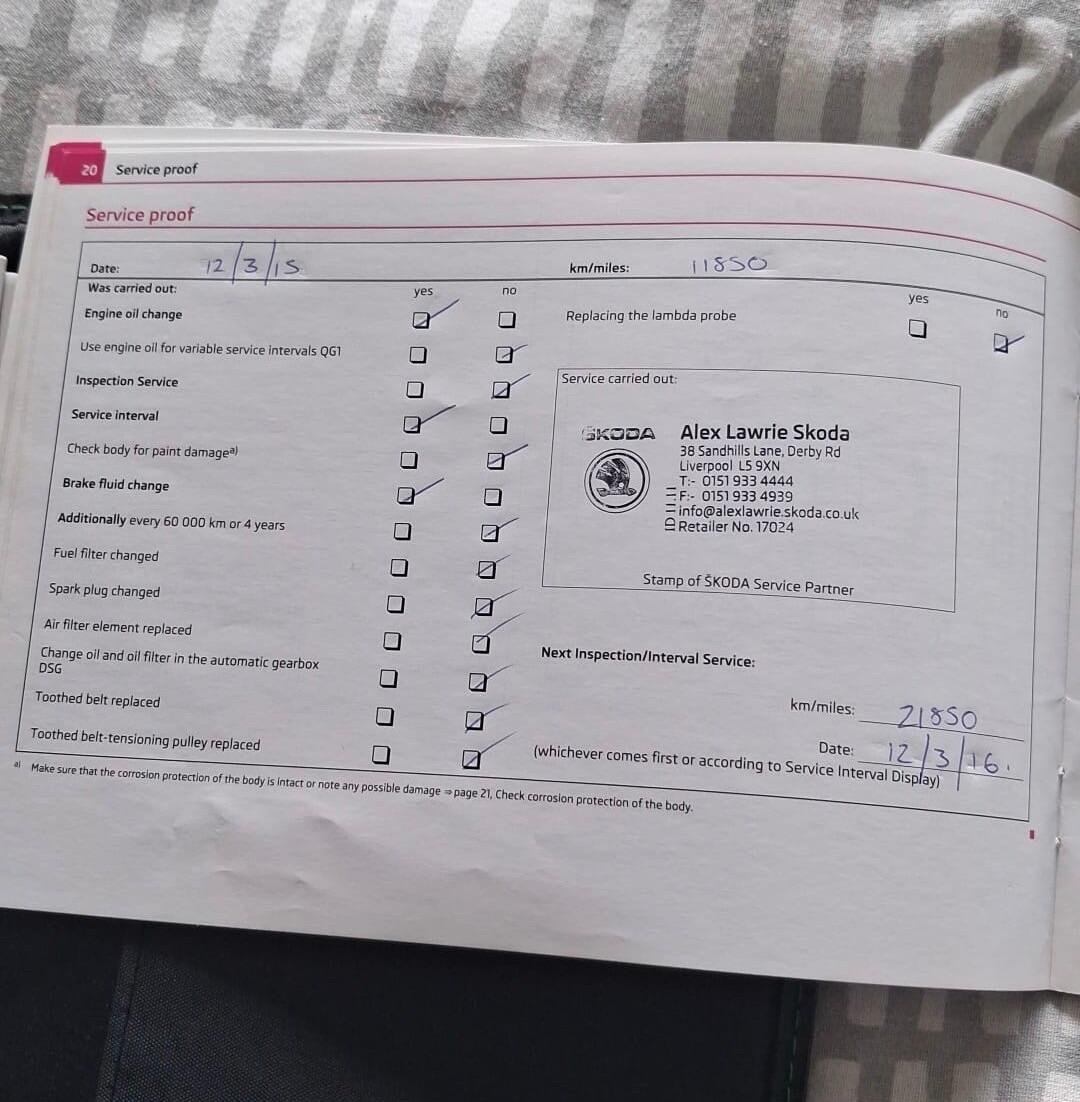 20 Service proof
Service proof
Date: 12/3/15 km/miles: 11850
Was carried out: yes no yes no
Engine oil change
Replacing the lambda probe
Use engine oil for variable service intervals QG1
Inspection Service
Service interval
Check body for paint damage a)
Brake fluid change
Additionally every 60 000 km or 4 years
Fuel filter changed
Spark plug changed
Air filter element replaced
Change oil and oil filter in the automatic gearbox
DSG
Toothed belt replaced
Toothed belt-tensioning pulley replaced
Service carried out:
ŠKODA Alex Lawrie Skoda
38 Sandhills Lane, Derby Rd
Liverpool L5 9XN
T:- 0151 933 4444
F:- 0151 933 4939
info@alexlawrie.skoda.co.uk
Retailer No. 17024
Stamp of ŠKODA Service Partner
Next Inspection/Interval Service:
km/miles: 21850
Date: 12/3/16.
(whichever comes first or according to Service Interval Display)
a) Make sure that the corrosion protection of the body is intact or note any possible damage ⇒ page 21, Check corrosion protection of the body.